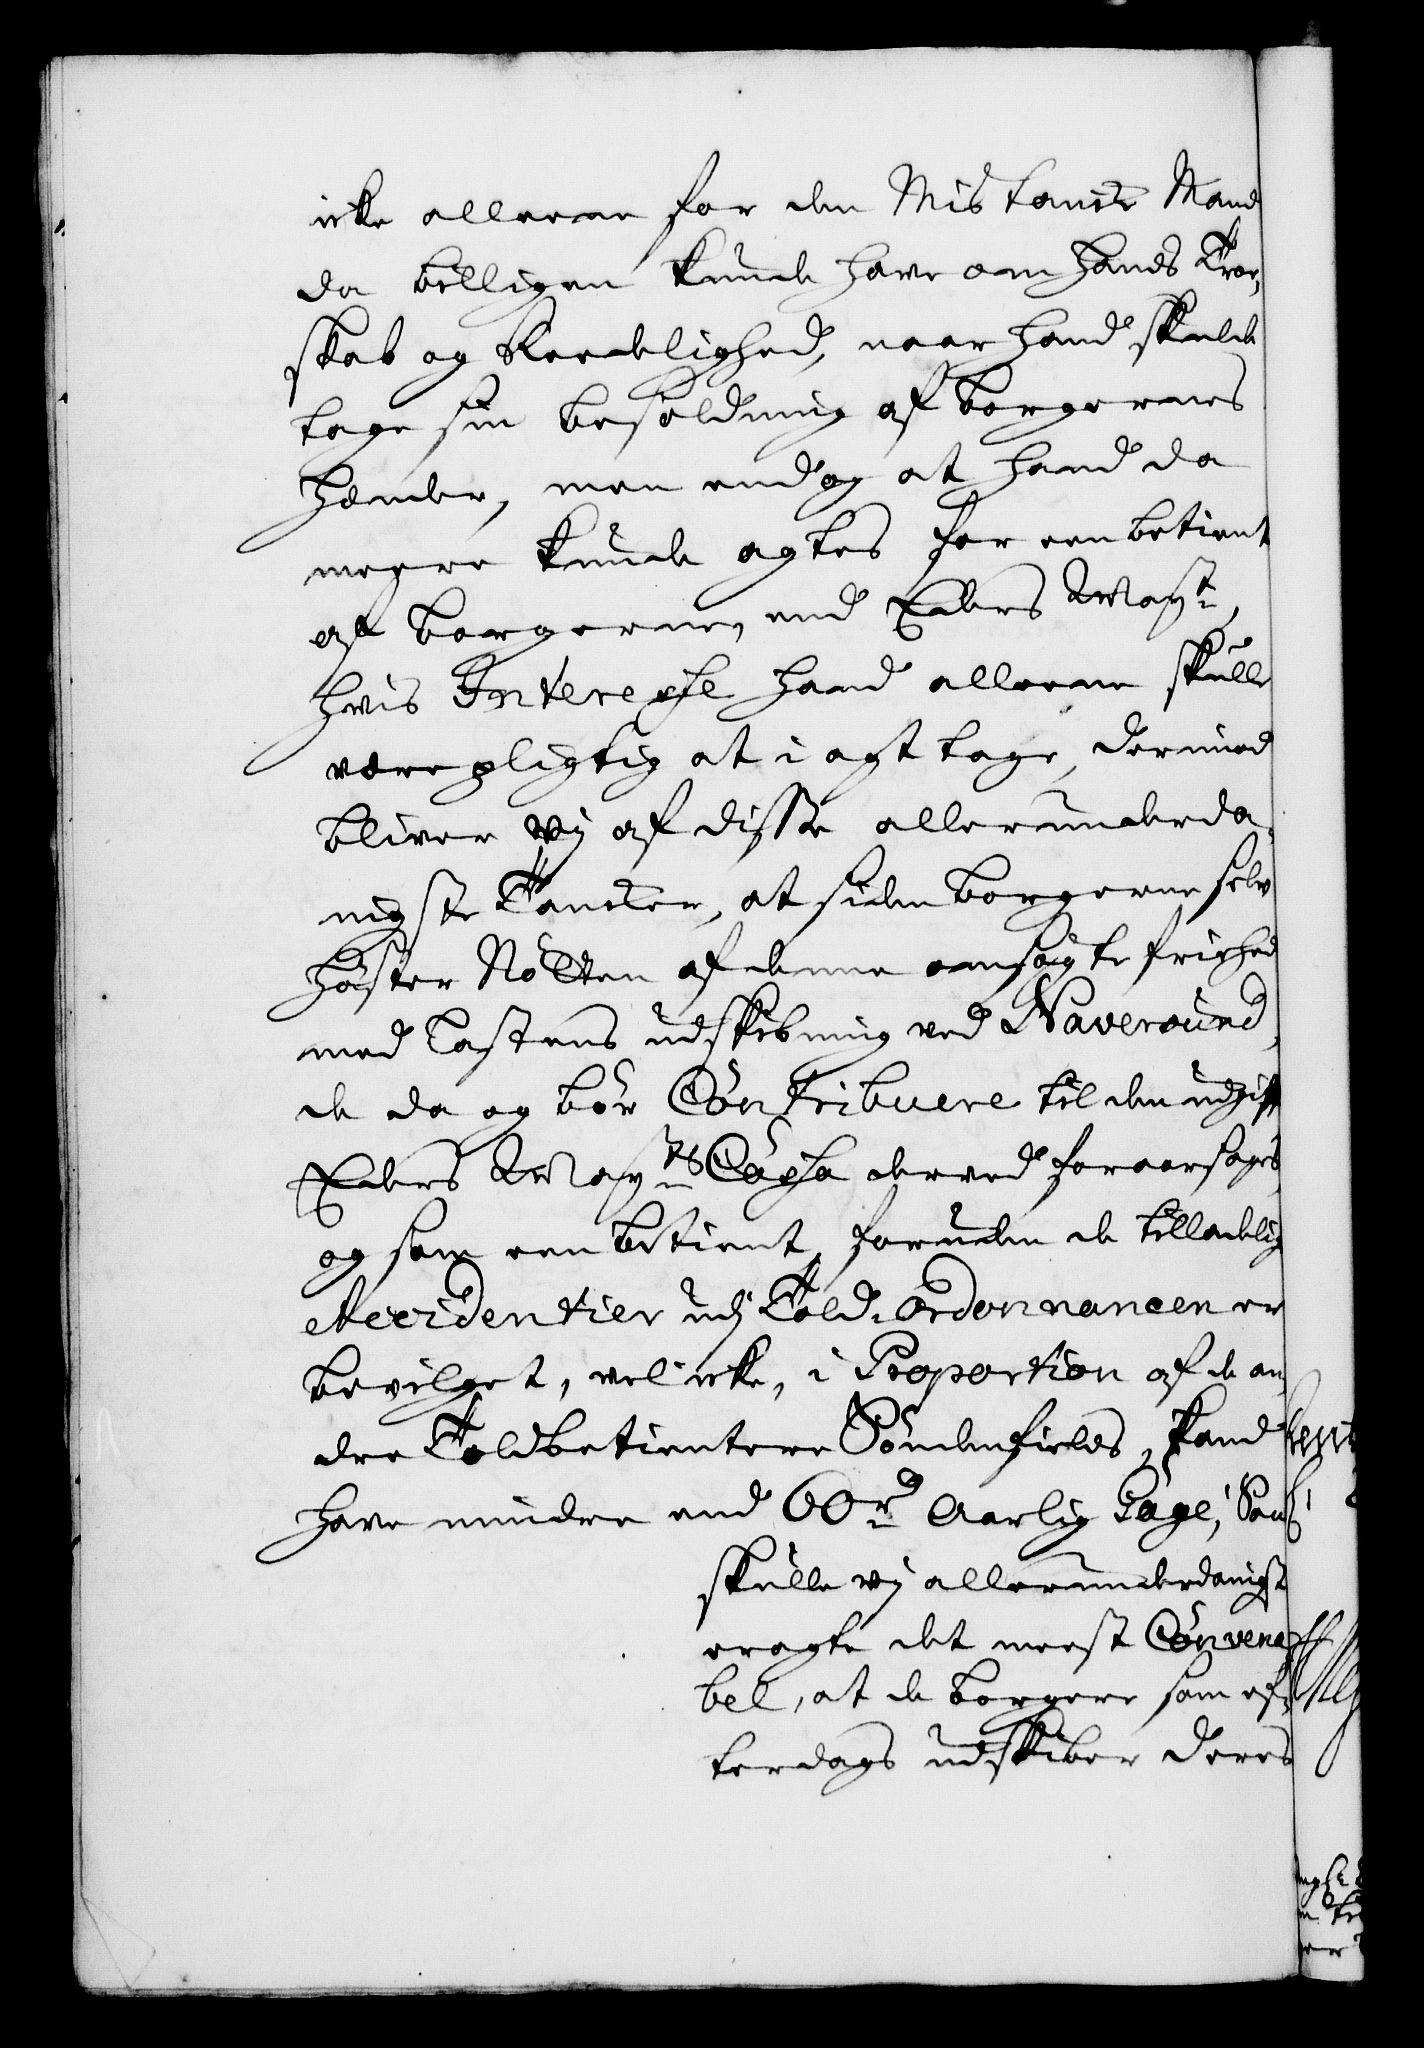 icke alleene for den Mistancke Mand
da billigen kunde have om hands Troe,
skab og Reedelighed, naar hand skulde
tage sin besoldning af borgernes
hænder, men end og at hand da
meere kunde agtes for een betient
af borgerne, end Eders Kl Mayt.,
hvis Interesse hand alleene skulle
være pligtig at i agt tage, dermed
bliver vij af disse allerunderda-
nigste Tancker, at siden borgerne selv
høster Nøtten af denne omsøgte frighed
med Lastens udskibning ved Naversund,
de da og bør Contribuere til den udgift
Eders Kl Mayts Cassa derved foraarsages,
og som een betient, foruden de tilladelig
Accidentier udj Told-Ordonnancen er
bevilget, vel icke, i Proportion af de an,
dre Toldbetientere Søndenfields, kand
have mindre end 60 rd Aarlig Gage, Saa
skulle vij allerunderdanigst
eragte det meest Convena,
bel, at de borgere som ef,
terdags udskiber deres